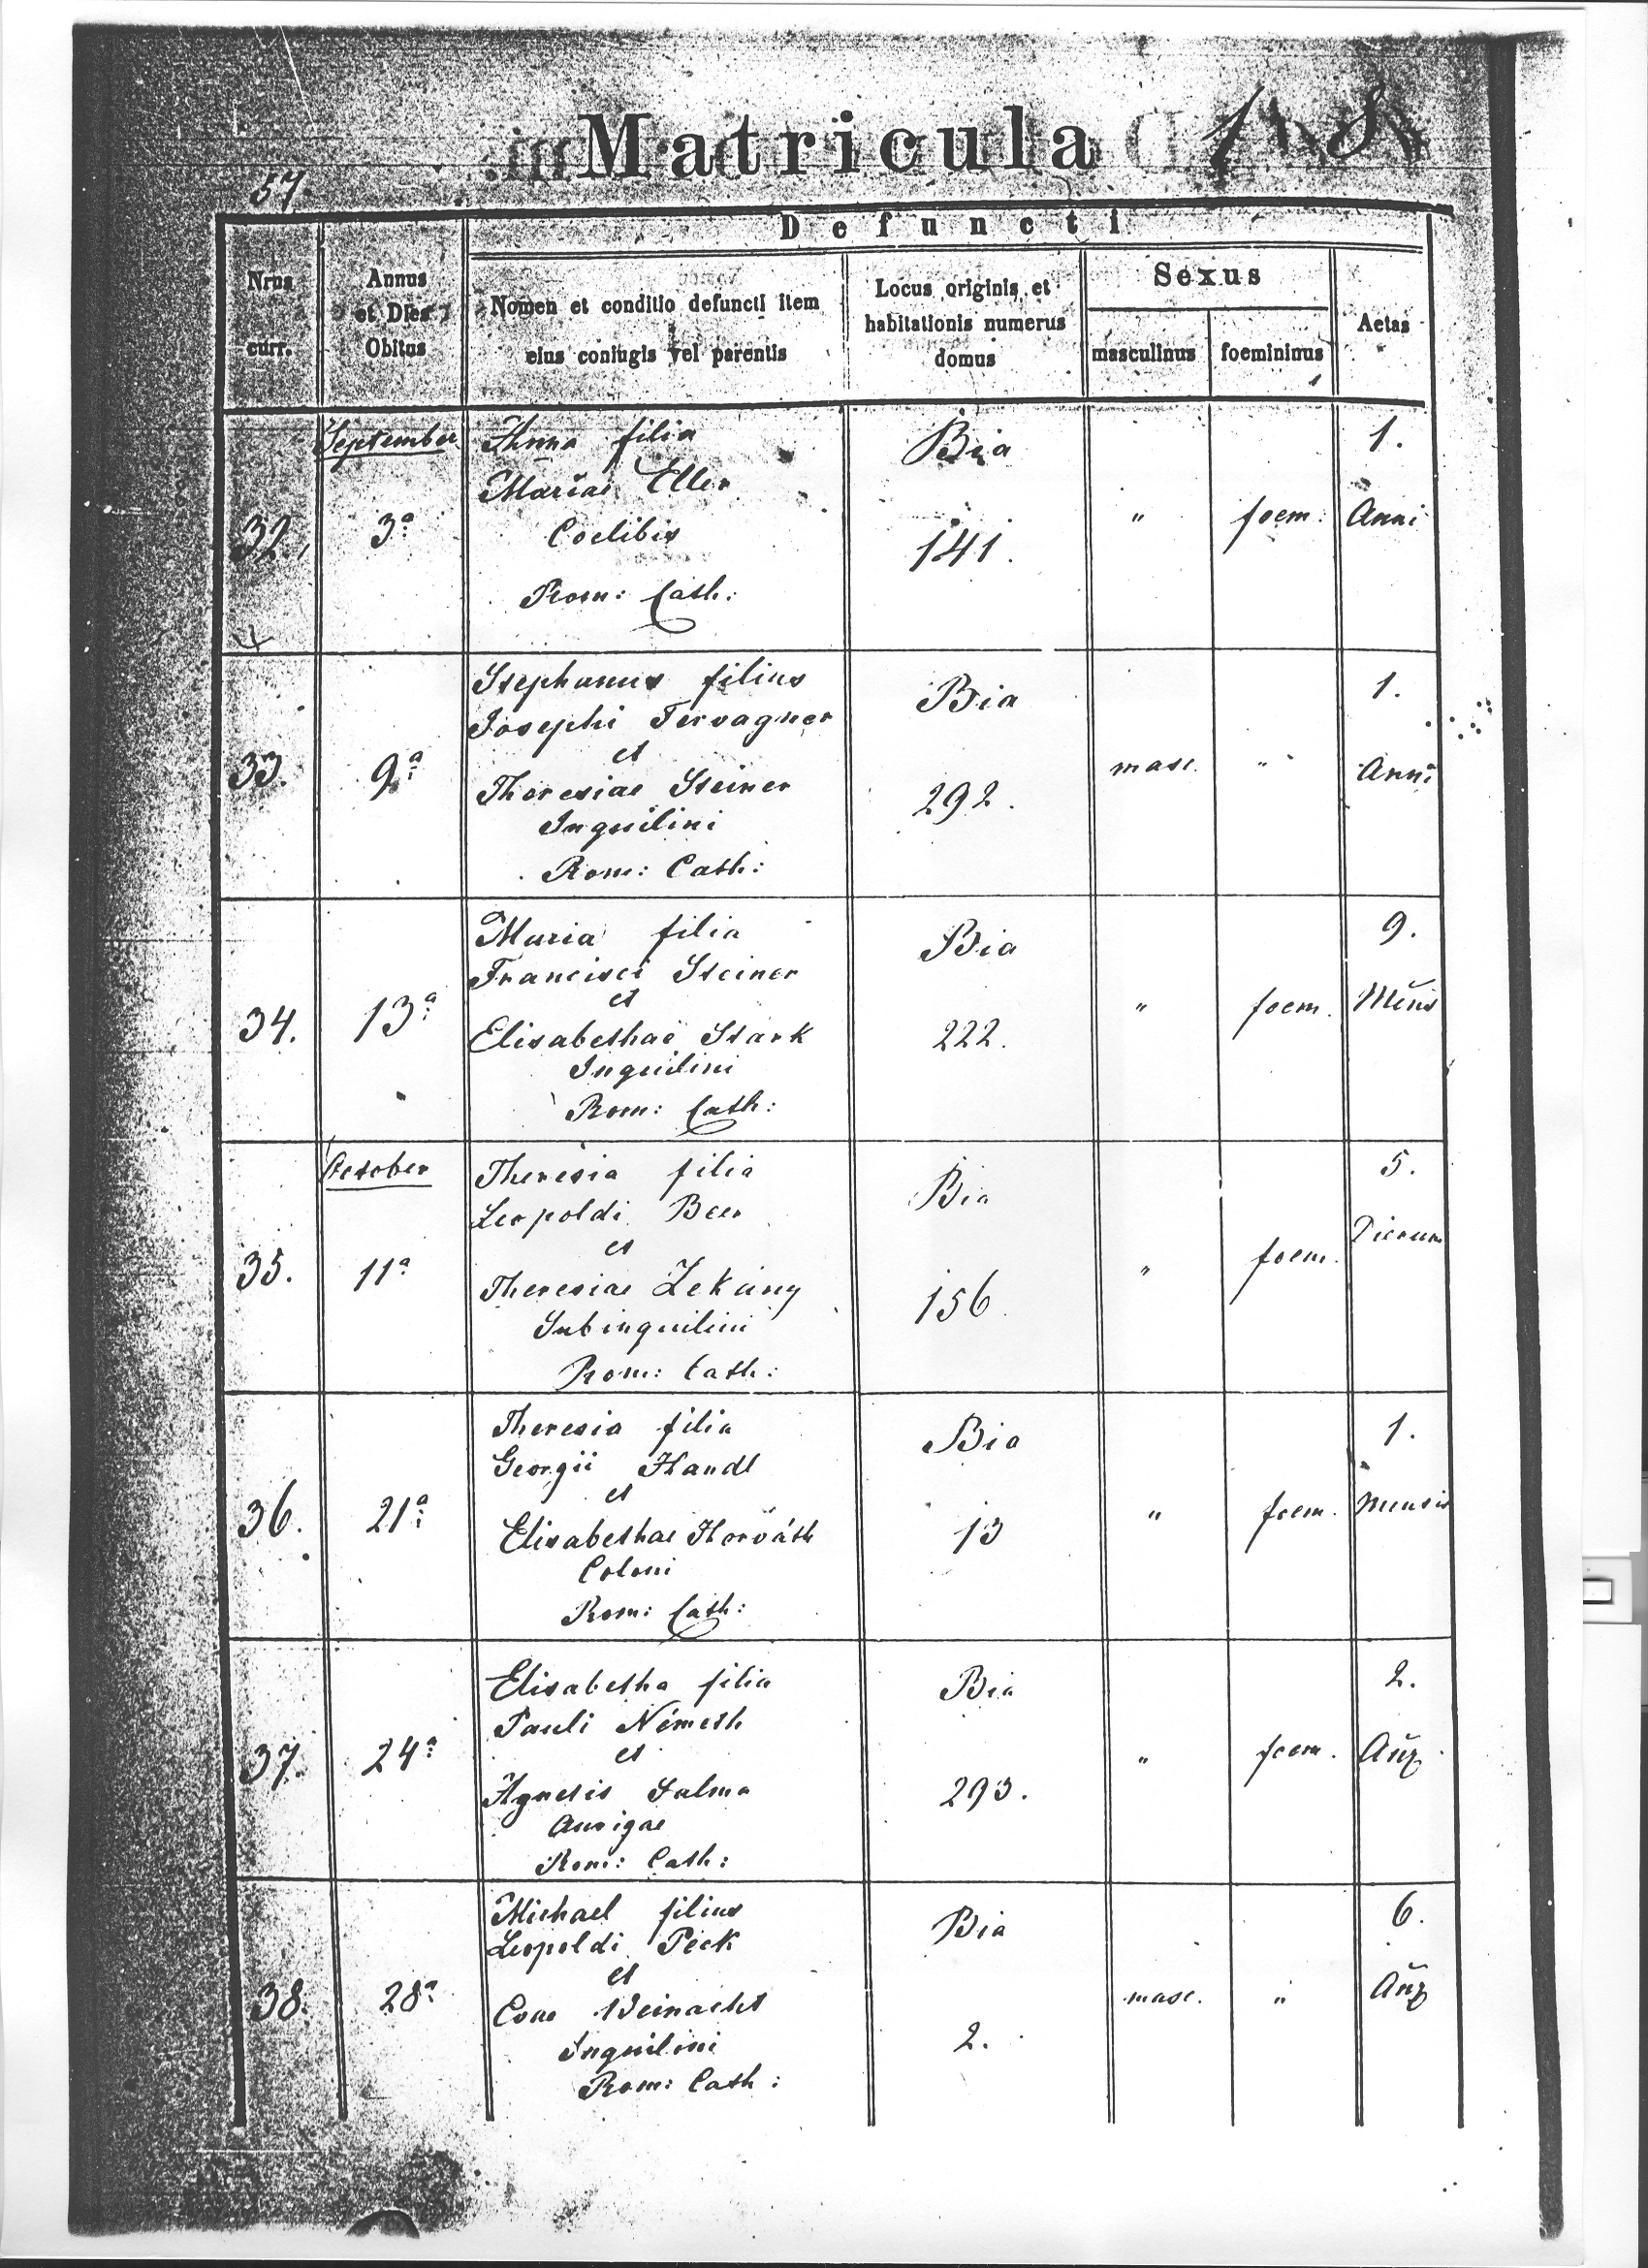 Matricula
18
57.
Defuncti
Nrus
curr.
Annus
et Dies
Obitus
Nomen et conditio defuncti item
eius coniugis vel parentis
Locus originis et
habitationis numerus
domus
Sexus
masculinus
foemininus
Aetas
September
32.
3a
Anna filia
Mariae Eller
Coelibis
Rom: Cath:
Bia
141.
"
foem:
1.
Anni
33.
9a
Stephanus filius
Josephi Tervagner
et
Theresiae Steiner
Inquilini
Rom: Cath:
Bia
292.
masc.
"
1.
Anni
34.
13a
Maria filia
Francisci Steiner
et
Elisabethae Stark
Inquilini
Rom: Cath:
Bia
222.
"
foem.
9.
Mens
October
35.
11a
Theresia filia
Leopoldi Beer
et
Theresiae Zekány
Subinquilini
Rom: Cath:
Bia
156
"
foem.
5.
Dierum
36.
21a
Theresia filia
Georgii Handl
et
Elisabethae Horváth
Coloni
Rom: Cath:
Bia
13
"
foem.
1.
Mensis
37.
24a
Elisabetha filia
Pauli Németh
et
Agnetis Salma
Aurigae
Rom: Cath:
Bia
293.
"
foem.
2.
38.
28a
Michael filius
Leopoldi Peck
et
Evae Weinacht
Inquilini
Rom: Cath:
Bia
2.
masc.
"
6.